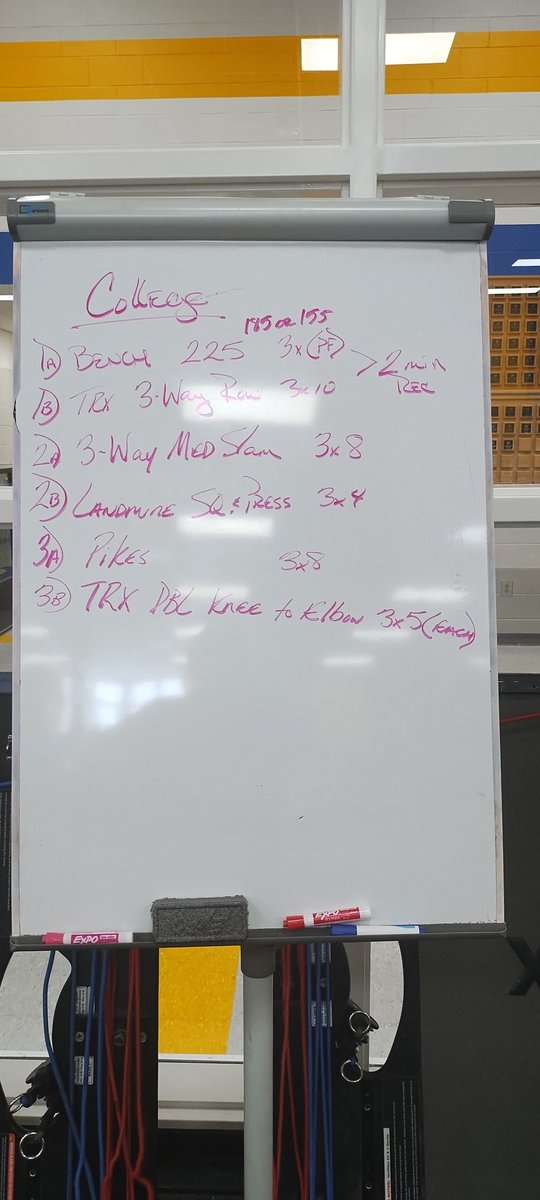 College
185 or 155
1A) Bench 225 3x(PF) > 2 min
1B) TRX 3-Way Row 3x10 Rec
2A 3-Way Med Slam 3x8
2B) Landmine Sq. & Press 3x4
3A) Pikes 3x8
3B) TRX Dbl Knee to Elbow 3x5 (each)
EXPO
EXPO